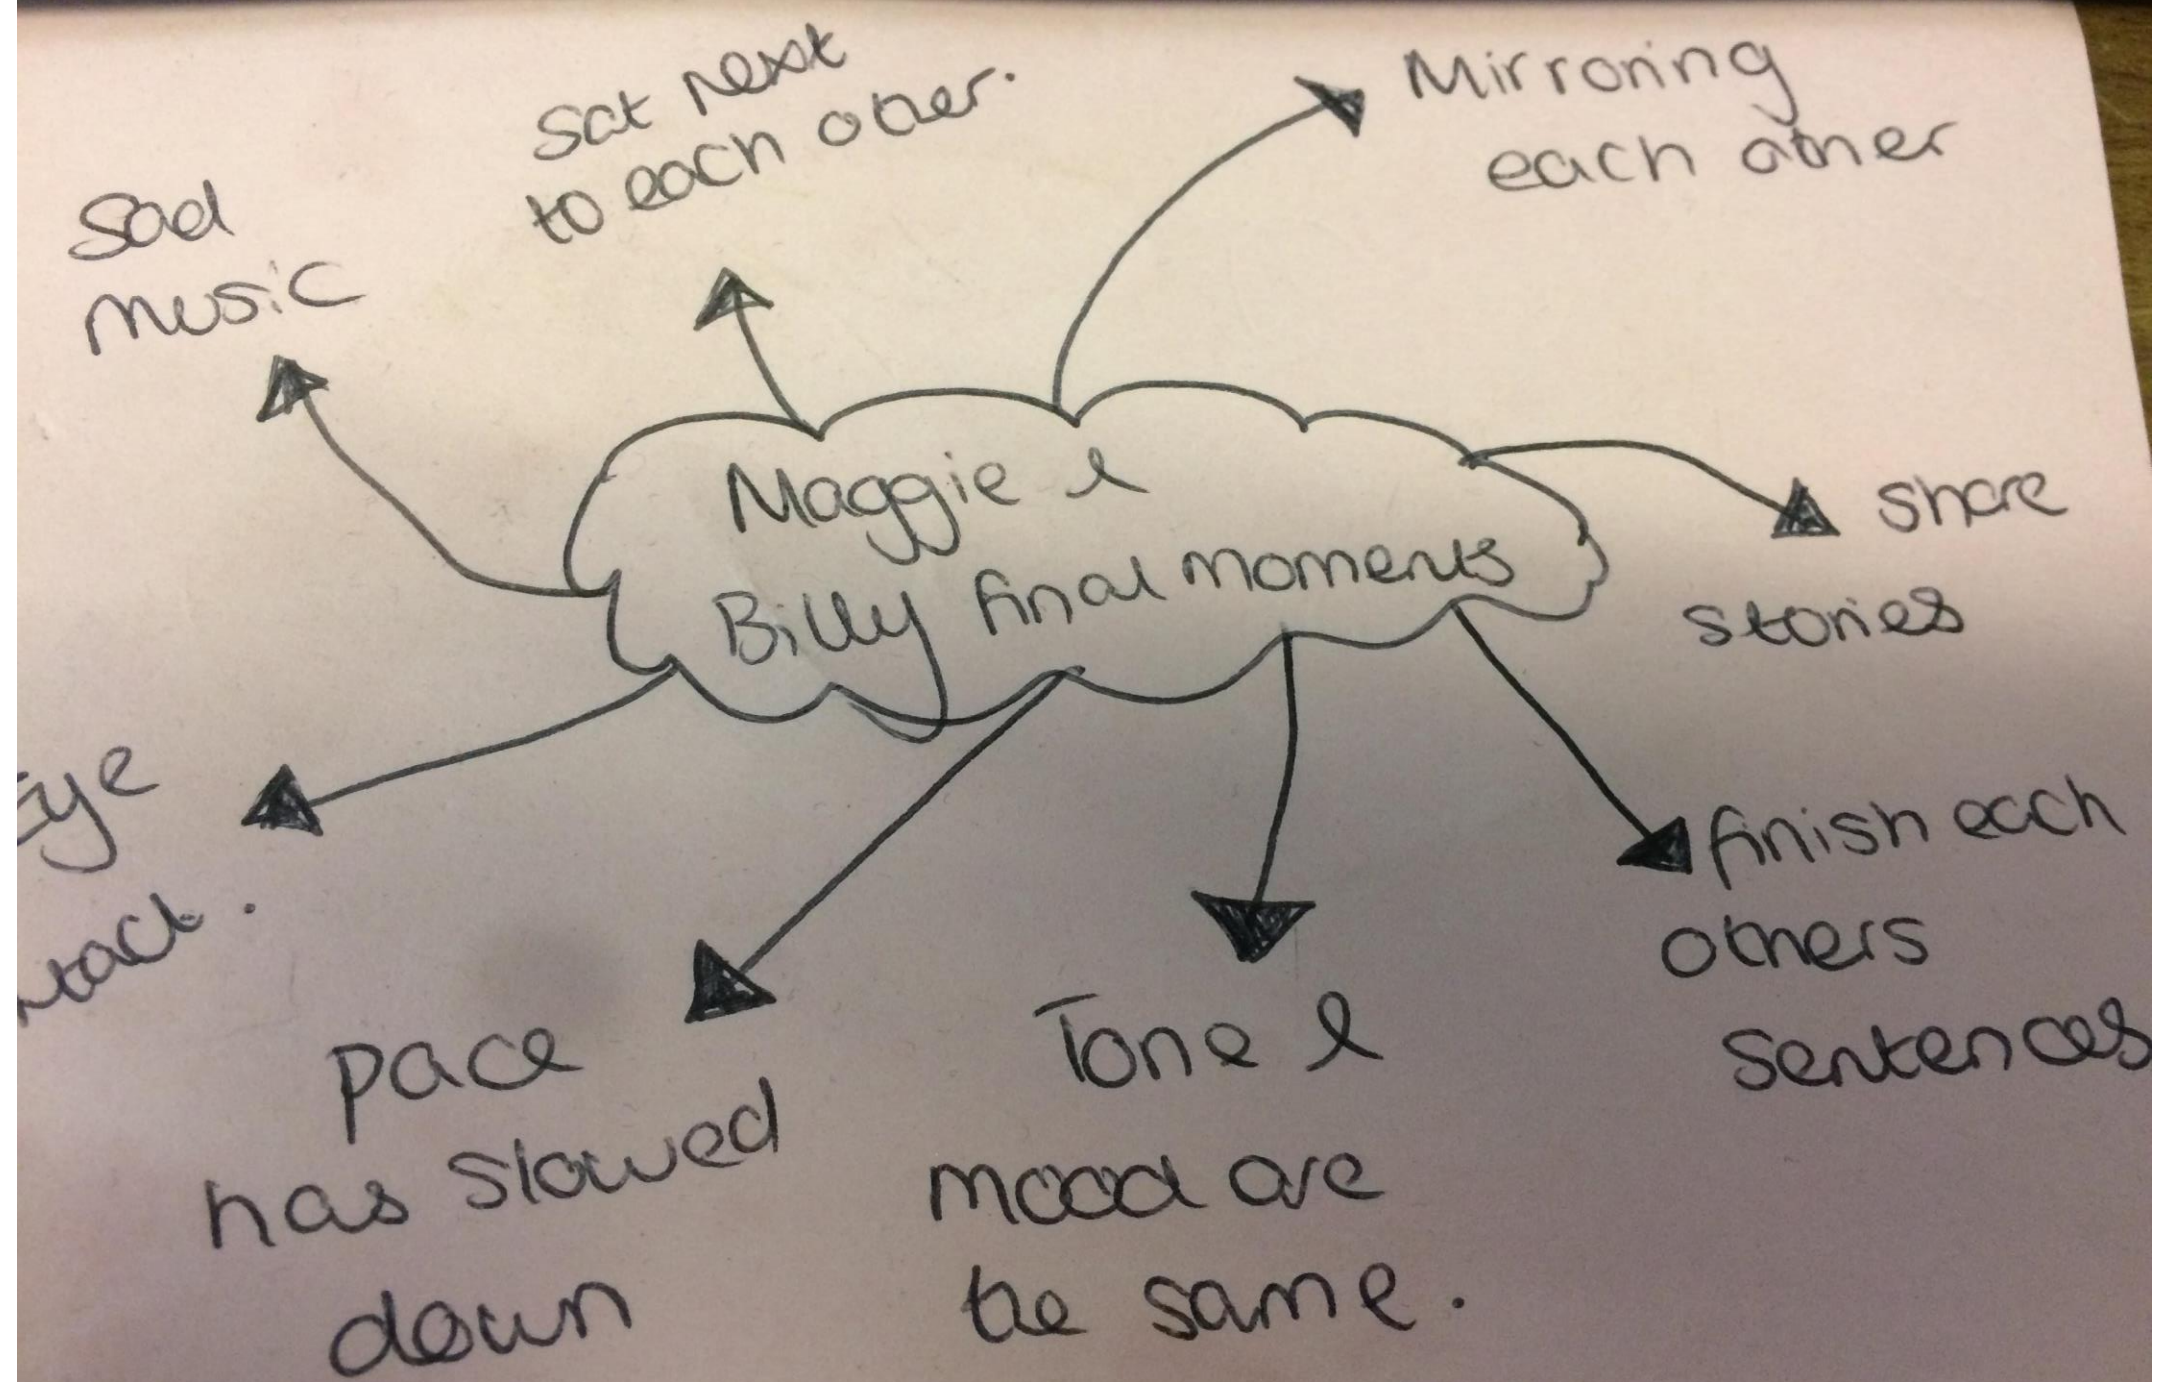 Maggie &
Billy final moments
Sad
music
Sat next
to each other.
Mirroring
each other
share
stories
finish each
others
sentences
Tone &
mood are
the same.
pace
has slowed
down
Eye